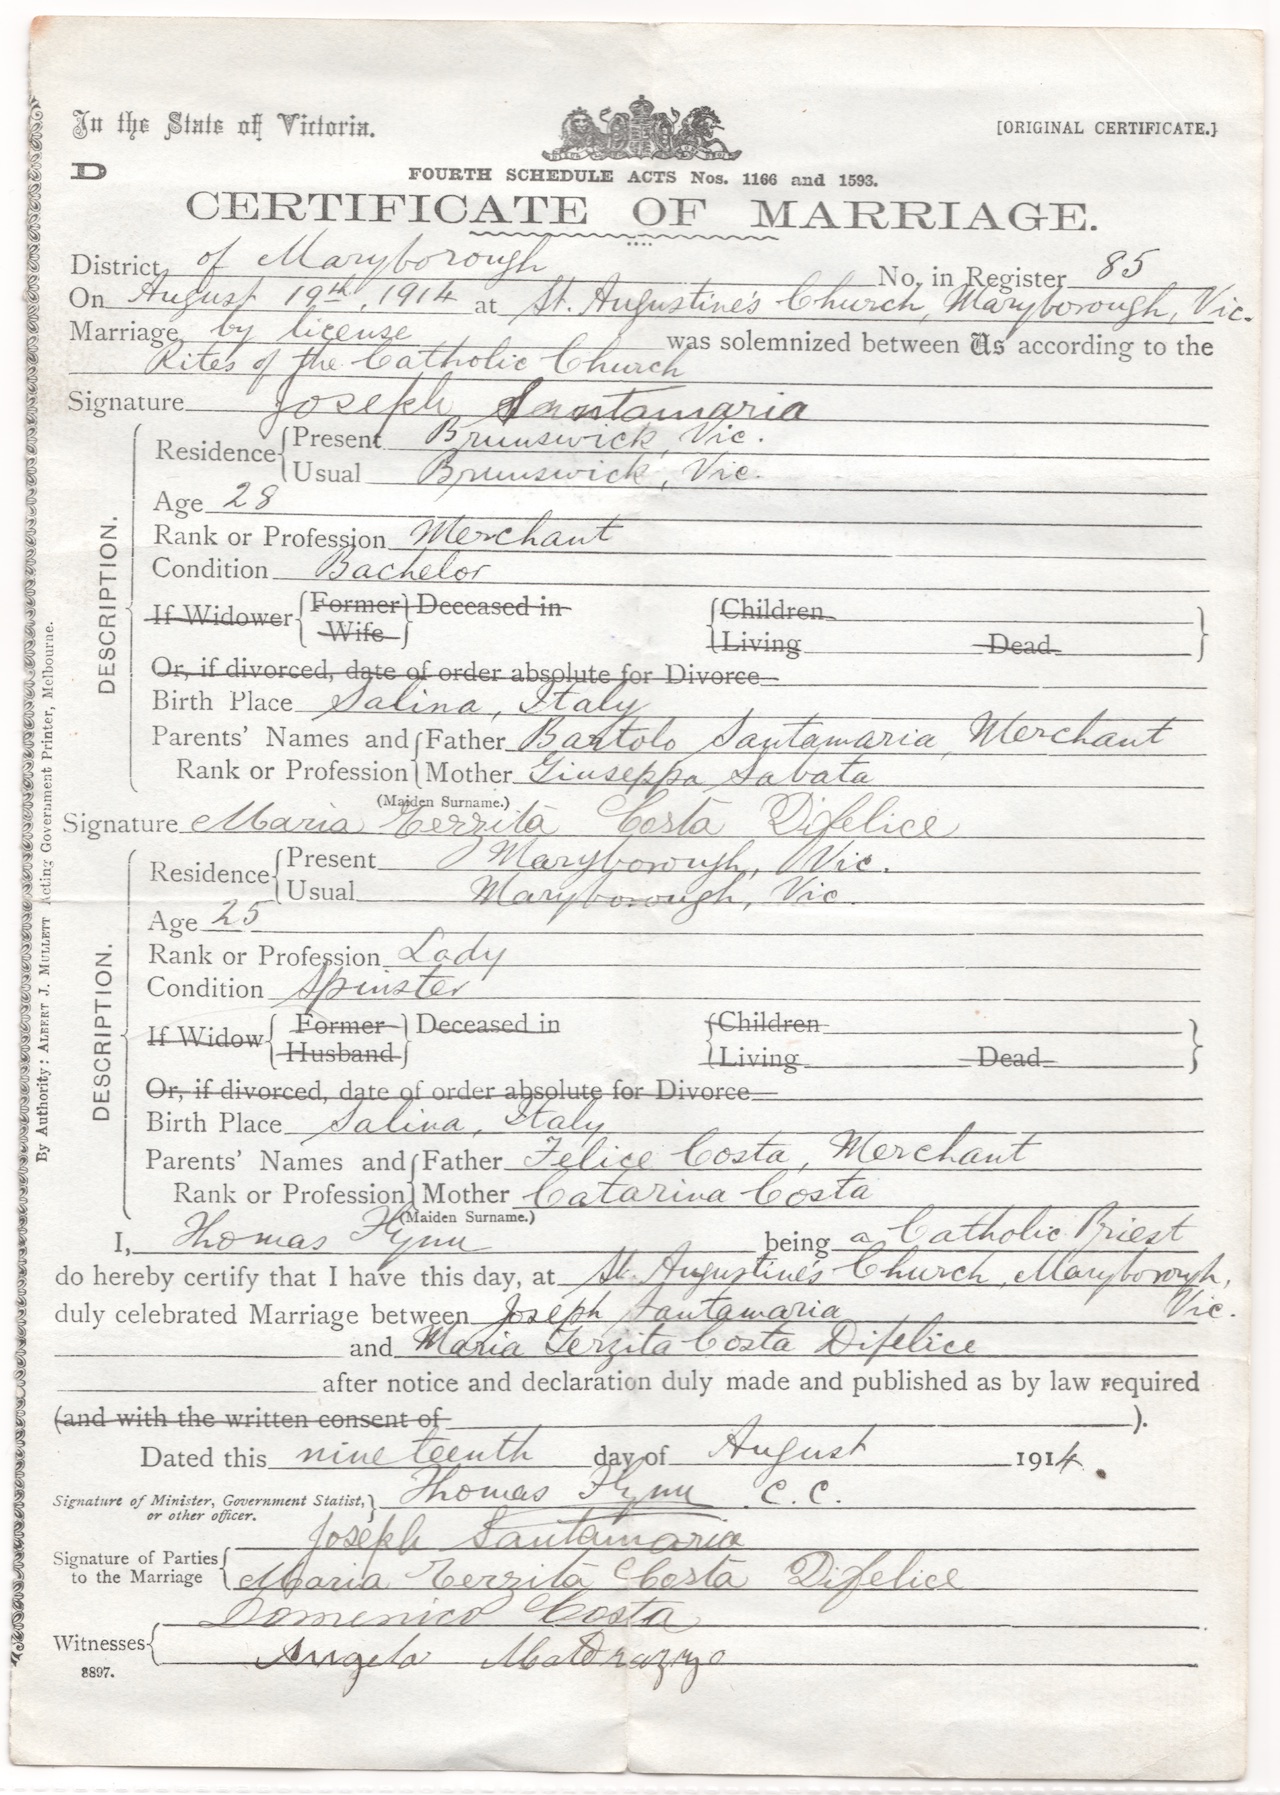 In the State of Victoria.
[ORIGINAL CERTIFICATE.]
D
FOURTH SCHEDULE ACTS Nos. 1166 and 1593.
CERTIFICATE OF MARRIAGE.
District of Maryborough No. in Register 85
On August 19th, 1914 at St. Augustine's Church, Maryborough, Vic.
Marriage by license was solemnized between Us according to the
Rites of the Catholic Church
Signature Joseph Santamaria
DESCRIPTION.
Residence Present Brunswick, Vic.
Usual Brunswick, Vic.
Age 28
Rank or Profession Merchant
Condition Bachelor
If Widower Former Wife Deceased in Children Living Dead
Or, if divorced, date of order absolute for Divorce
Birth Place Salina, Italy
Parents' Names and Father Bartolo Santamaria, Merchant
Rank or Profession Mother Giuseppa Sabata
(Maiden Surname.)
Signature Maria Terzita Costa Difelice
DESCRIPTION.
Residence Present Maryborough, Vic.
Usual Maryborough, Vic.
Age 25
Rank or Profession Lady
Condition Spinster
If Widow Former Husband Deceased in Children Living Dead
Or, if divorced, date of order absolute for Divorce
Birth Place Salina, Italy
Parents' Names and Father Felice Costa, Merchant
Rank or Profession Mother Catarina Costa
(Maiden Surname.)
I, Thomas Flynn being a Catholic Priest
do hereby certify that I have this day, at St. Augustine's Church, Maryborough, Vic.
duly celebrated Marriage between Joseph Santamaria
and Maria Terzita Costa Difelice
after notice and declaration duly made and published as by law required
(and with the written consent of ).
Dated this nineteenth day of August 1914.
Signature of Minister, Government Statist, Thomas Flynn C.C.
or other officer.
Joseph Santamaria
Signature of Parties
to the Marriage Maria Terzita Costa Difelice
Domenico Costa
Witnesses
Angela
8897.
By Authority: ALBERT J. MULLETT Acting Government Printer, Melbourne.